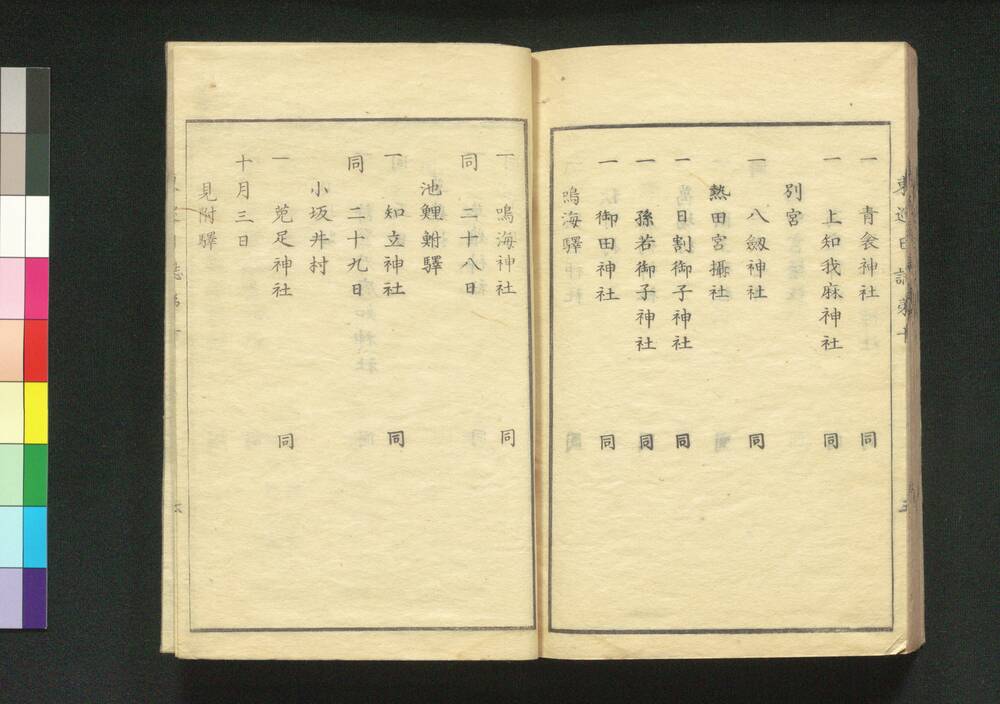 一 青衾神社 同
一 上知我麻神社 同
別宮
一 八劔神社 同
熱田宮攝社
一 日割御子神社 同
一 孫若御子神社 同
一 御田神社 同
鳴海驛
一 鳴海神社 同
同 二十八日
池鯉鮒驛
一 知立神社 同
同 二十九日
小坂井村
一 菟足神社 同
十月三日
見附驛